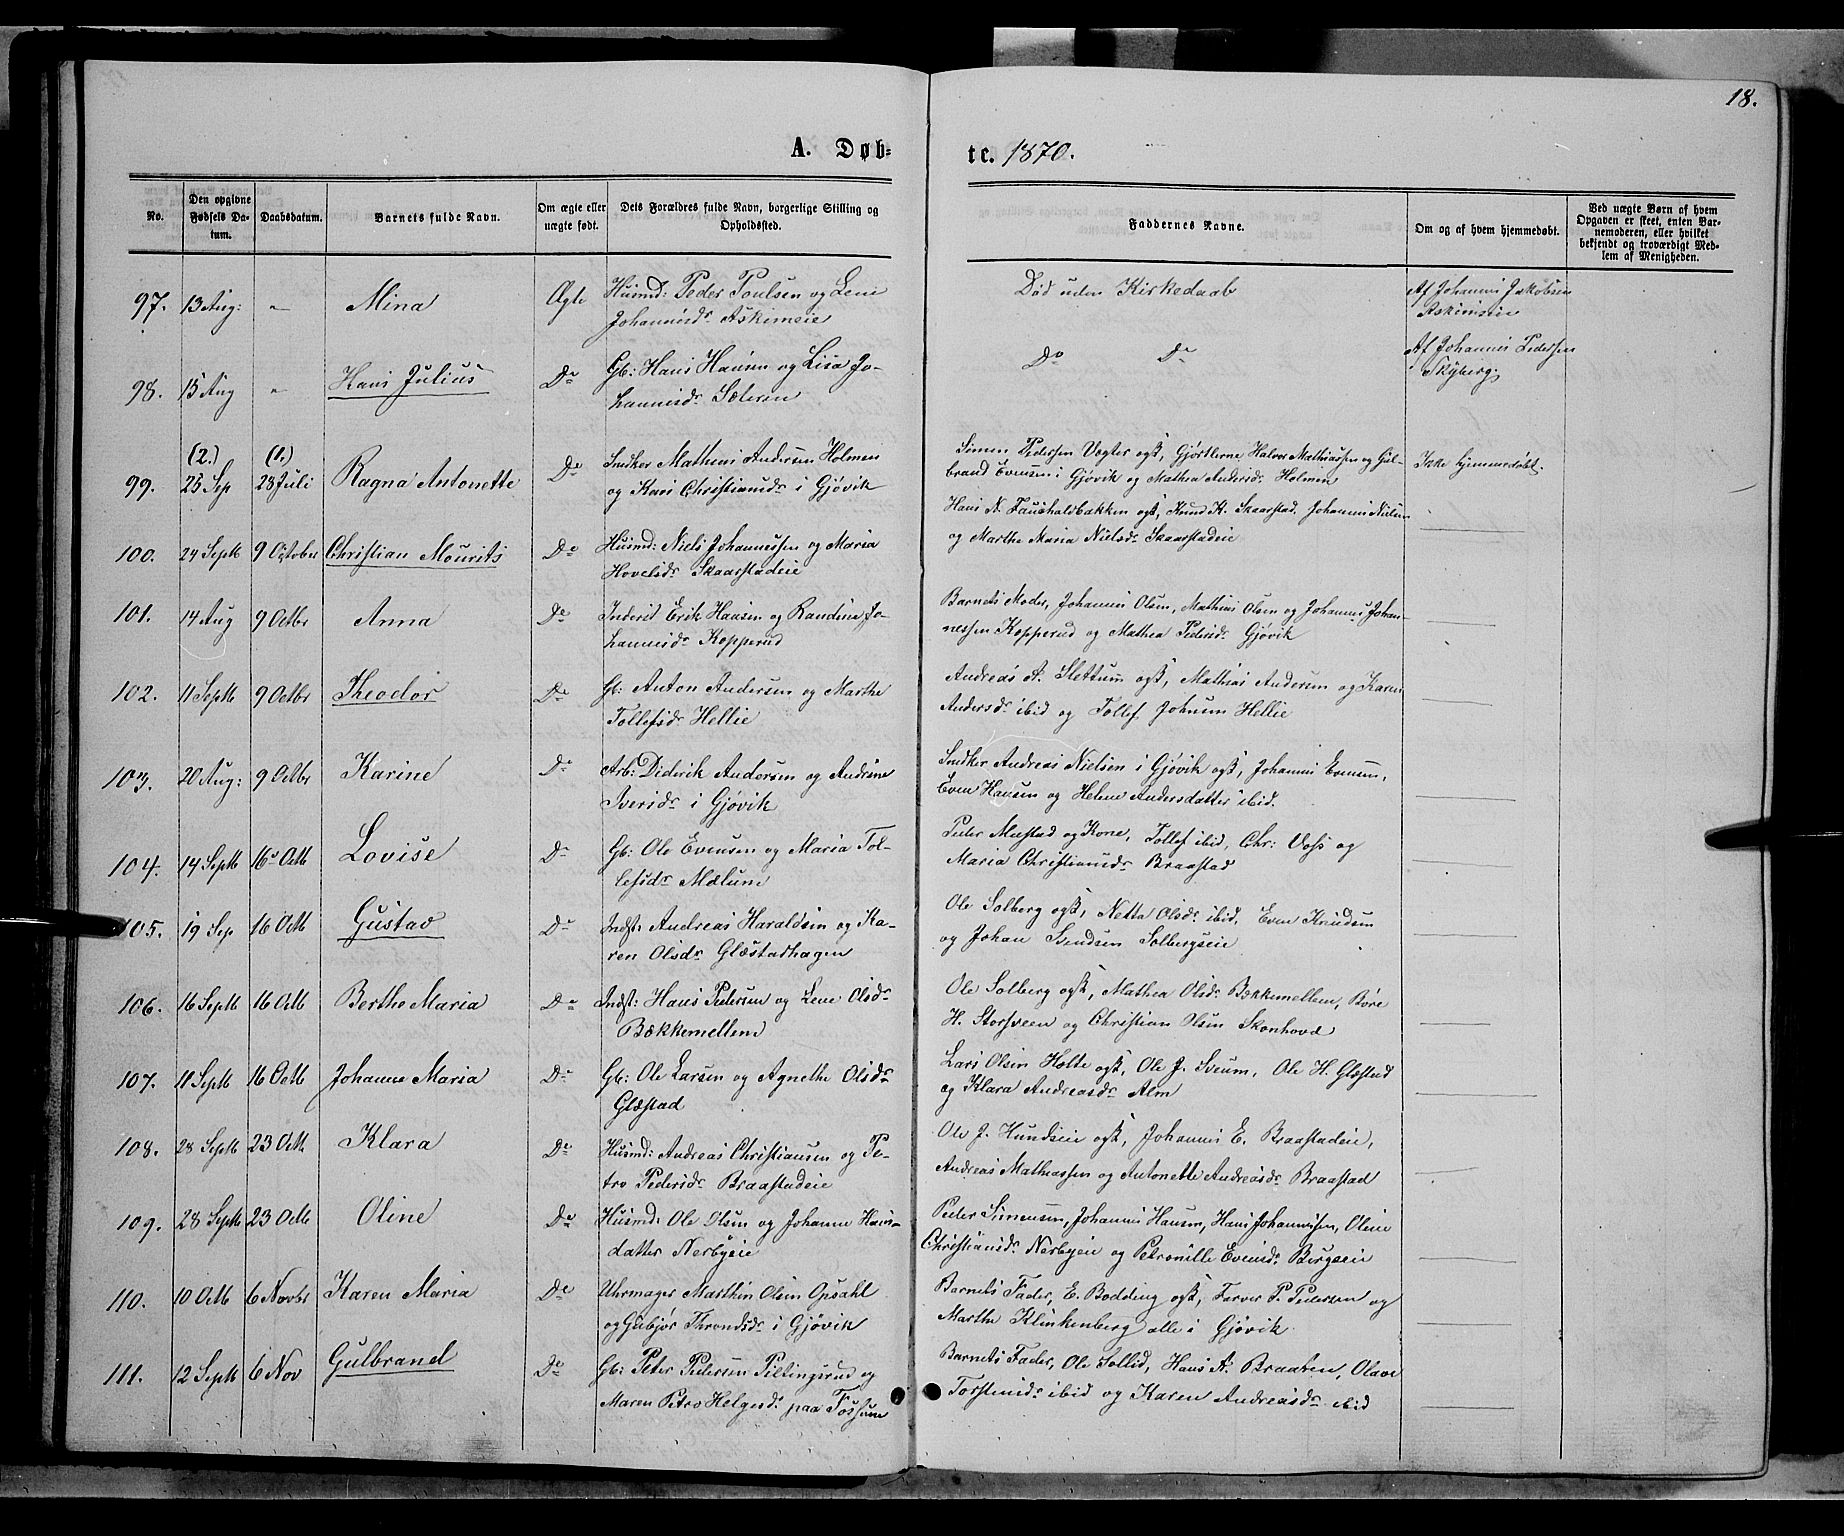 18.
A. Døb-
te. 1870.
No.
Den opgivne Fødsels Da-tum.
Daabsdatum.
Barnets fulde Navn.
Om ægte eller uægte født.
Dets Forældres fulde Navn, borgerlige Stilling og Opholdssted.
Faddernes Navne.
Om og af hvem hjemmedøbt.
Ved uægte Børn af hvem Opgaven er skeet, enten Bar-nemoderen, eller hvilket bekjendt og troværdigt Med-lem af Menigheden.
97. 13 Aug: " Mina Ægte Husmd: Peder Poulsen og Lene
Johannisdr Askimeie
Død uden Kirkedaab
Af Johannis Jakobsen
Askimeie
98. 15 Aug " Hans Julius Do Gb: Hans Hansen og Lisa Jo-
hannisdr Sæteren
Do Do
Af Johannis Pedersen
Skyberg.
(2.) (1.)
99. 25 Sep 28 Juli Ragna Antonette Do Sndker Mathias Andersen Holmen
og Kari Christiansdr i Gjøvik
Simen Pedersen Vegter ogst, Gjørtlerne Halvor Mathiassen og Gul-
brand Evensen i Gjøvik og Mathea Andersdr Holmen
Ikke hjemmedøbt.
100. 24 Septb 9 October Christian Mourits Do Husmd: Niels Johannessen og Maria
Hovelsdr Skaarstadeie
Hans N. Faushaldbakken ogst, Knud K. Skaarstad, Johannis Nielsen
og Marthe Maria Nielsdr Skaarstadeie
101. 14 Aug 9 Octbr Anna Do Inderst Erik Hansen og Randine Jo-
hannisdr Kopperud
Barnets Moder, Johannis Olsen, Mathias Olsen og Johannis Johan-
nessen Kopperud og Mathea Pedersdr Gjøvik
102. 11 Septb 9 Octbr Theodor Do Gb: Anton Andersen og Marthe
Tollefsdr Hellie
Andreas A. Slettum ogst, Mathias Andersen og Karen
Andersdr ibid og Tollef Johnsen Hellie
103. 20 Aug: 9 Octbr Karine Do Arb: Diderik Andersen og Andrine
Iversdr i Gjøvik
Sndker Andreas Nielsen i Gjøvik ogst, Johannis Evensen,
Even Hansen og Helene Andersdatter ibid.
104. 14 Septb 16 Octb Lovise Do Gb: Ole Evensen og Maria Tol-
lefsdr Mælum
Peder Mustad og Kone, Tollef ibid, Chr: Voss og
Maria Christiansdr Braastad
105. 19 Sep 16 Octb Gustav Do Indst: Andreas Haraldsen og Ka-
ren Olsdr Glæstadhagen
Ole Solberg ogst, Netta Olsdr ibid, Even Knudsen
og Johan Svendsen Solbergseie
106. 16 Septb 16 Octb Berthe Maria Do Indst: Hans Pedersen og Lene Olsdr
Bækkemellem
Ole Solberg ogst, Mathea Olsdr Bækkemellem, Børe
H. Storsveen og Christian Olsen Skonhovd
107. 11 Septb 16 Octb Johanne Maria Do Gb: Ole Larsen og Agnethe Olsdr
Glæstad
Lars Olsen Holte ogst, Ole J. Sveum, Ole H. Glæstad
og Klara Andreasdr Alm
108. 28 Septb 23 Octb. Klara Do Husmd: Andreas Christiansen og Pe-
tra Pedersdr Braastadeie
Ole J. Hundseie ogst, Johannis E. Braastadeie,
Andreas Mathiassen og Antonette Andreasdr Braastad
109. 28 Septb 23 Octb Oline Do Husmd: Ole Olsen og Johanne Hans-
datter Nerbyeie
Peder Simensen, Johannis Hansen, Hans Johannissen, Oline
Christiansdr Nerbyeie og Petronille Evensdr Bergseie
110. 10 Octb 6 Novbr Karen Maria Do Uhrmager Marthin Olsen Opsahl
og Gubjør Throndsdr i Gjøvik
Barnets Fader, E. Bodding ogst, Farver P. Pedersen og
Marthe Klinkenberg alle i Gjøvik.
111. 12 Septb 6 Nov Gulbrand Do Gb: Peter Pedersen Piltingsrud og
Maren Petra Helgesdr paa Fossum
Barnets Fader, Ole Sollid, Hans A. Braaten, Olave
Torstensdr ibid og Karen Andreasdr ibid